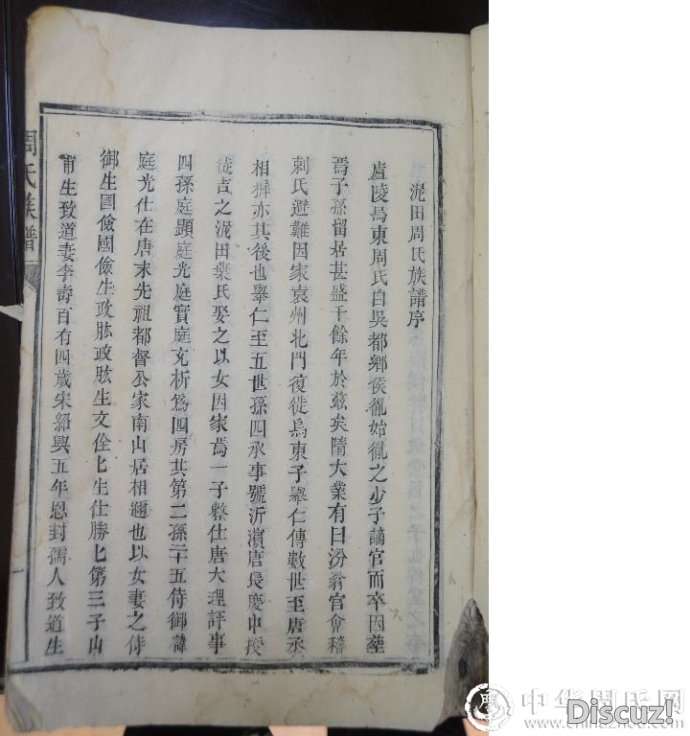 泥田周氏族譜序
廬陵烏東周氏自吳都鄉侯徹始徹之少子謫官而卒因塟
焉子孫留居甚盛千餘年於兹矣隋大業有曰汾翁官會稽
刺氏避難因家袁州北門復徙烏東子舉仁傳數世至唐丞
相墀亦其後也舉仁至五世孫四承事號沂濱唐長慶中授
徒吉之泥田業氏娶之以女因家焉一子整仕唐大理評事
四孫庭顯庭光庭實庭充析爲四房其第二孫二十五侍御諱
庭光仕在唐末先祖都督公家南山居相邇也以女妻之侍
御生國儉國儉生政肱政肱生文佺七生仕勝七第三子山
甫生致道妻李壽百有四歲宋紹興五年恩封孺人致道生
周氏族譜
中华周氏网
Discuz!